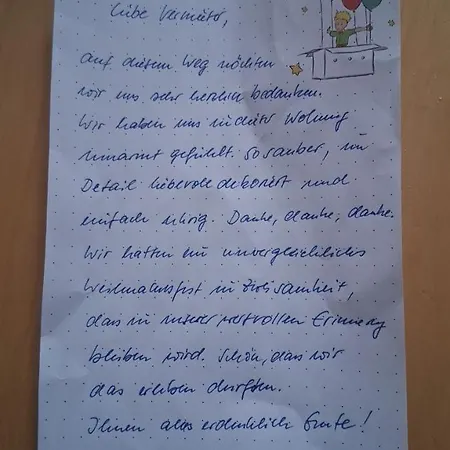 Liebe Vermieter,
auf diesem Weg möchten
wir uns sehr herzlich bedanken.
Wir haben uns in dieser Wohnung
umarmt gefühlt. So sauber, im
Detail liebevoll dekoriert und
einfach ruhig. Danke, danke, danke.
Wir hatten ein unvergleichliches
Weihnachtsfest in Zweisamkeit,
das in unserer wertvollen Erinnerung
bleiben wird. Schön, dass wir
das erleben durften.
Ihnen alles erdenklich Gute!